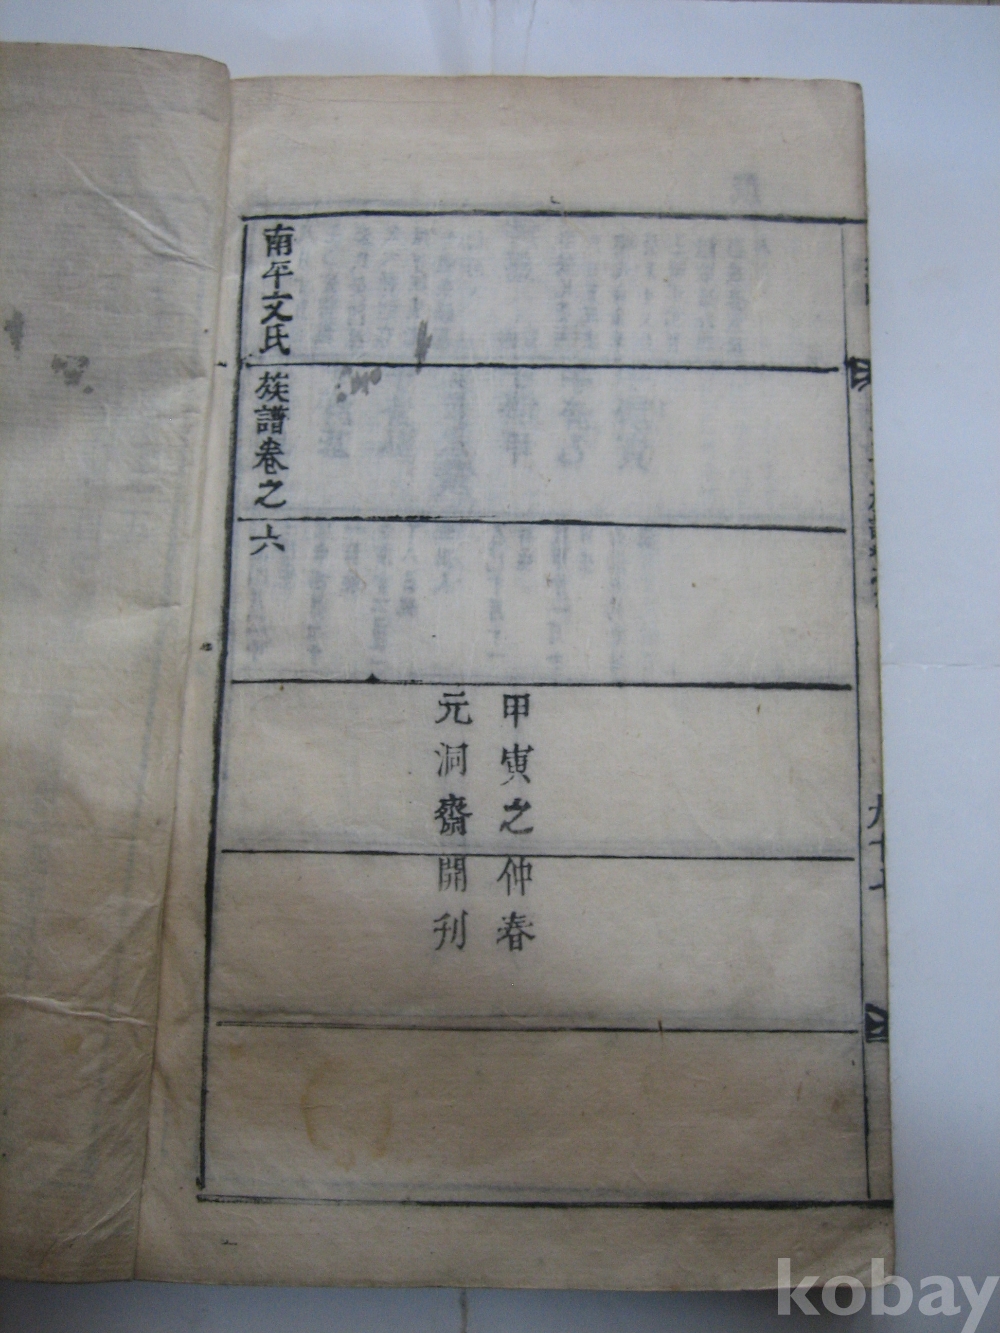 甲寅之仲春
元洞齋開刊
南平文氏族譜卷之六
kobay